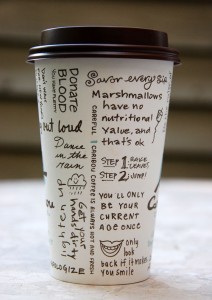 Savor every sip
Marshmallows
have no
nutritional
value, and
that's ok
STEP 1 RAKE LEAVES
STEP 2 JUMP!
YOU'LL ONLY
BE YOUR
CURRENT
AGE ONCE
only
look
back if it makes
you smile
DONATE
BLOOD
out loud
Dance
in the
rain
CAREFUL
CARIBOU COFFEE IS ALWAYS HOT AND FRESH
lighten up
Get your
hands
dirty